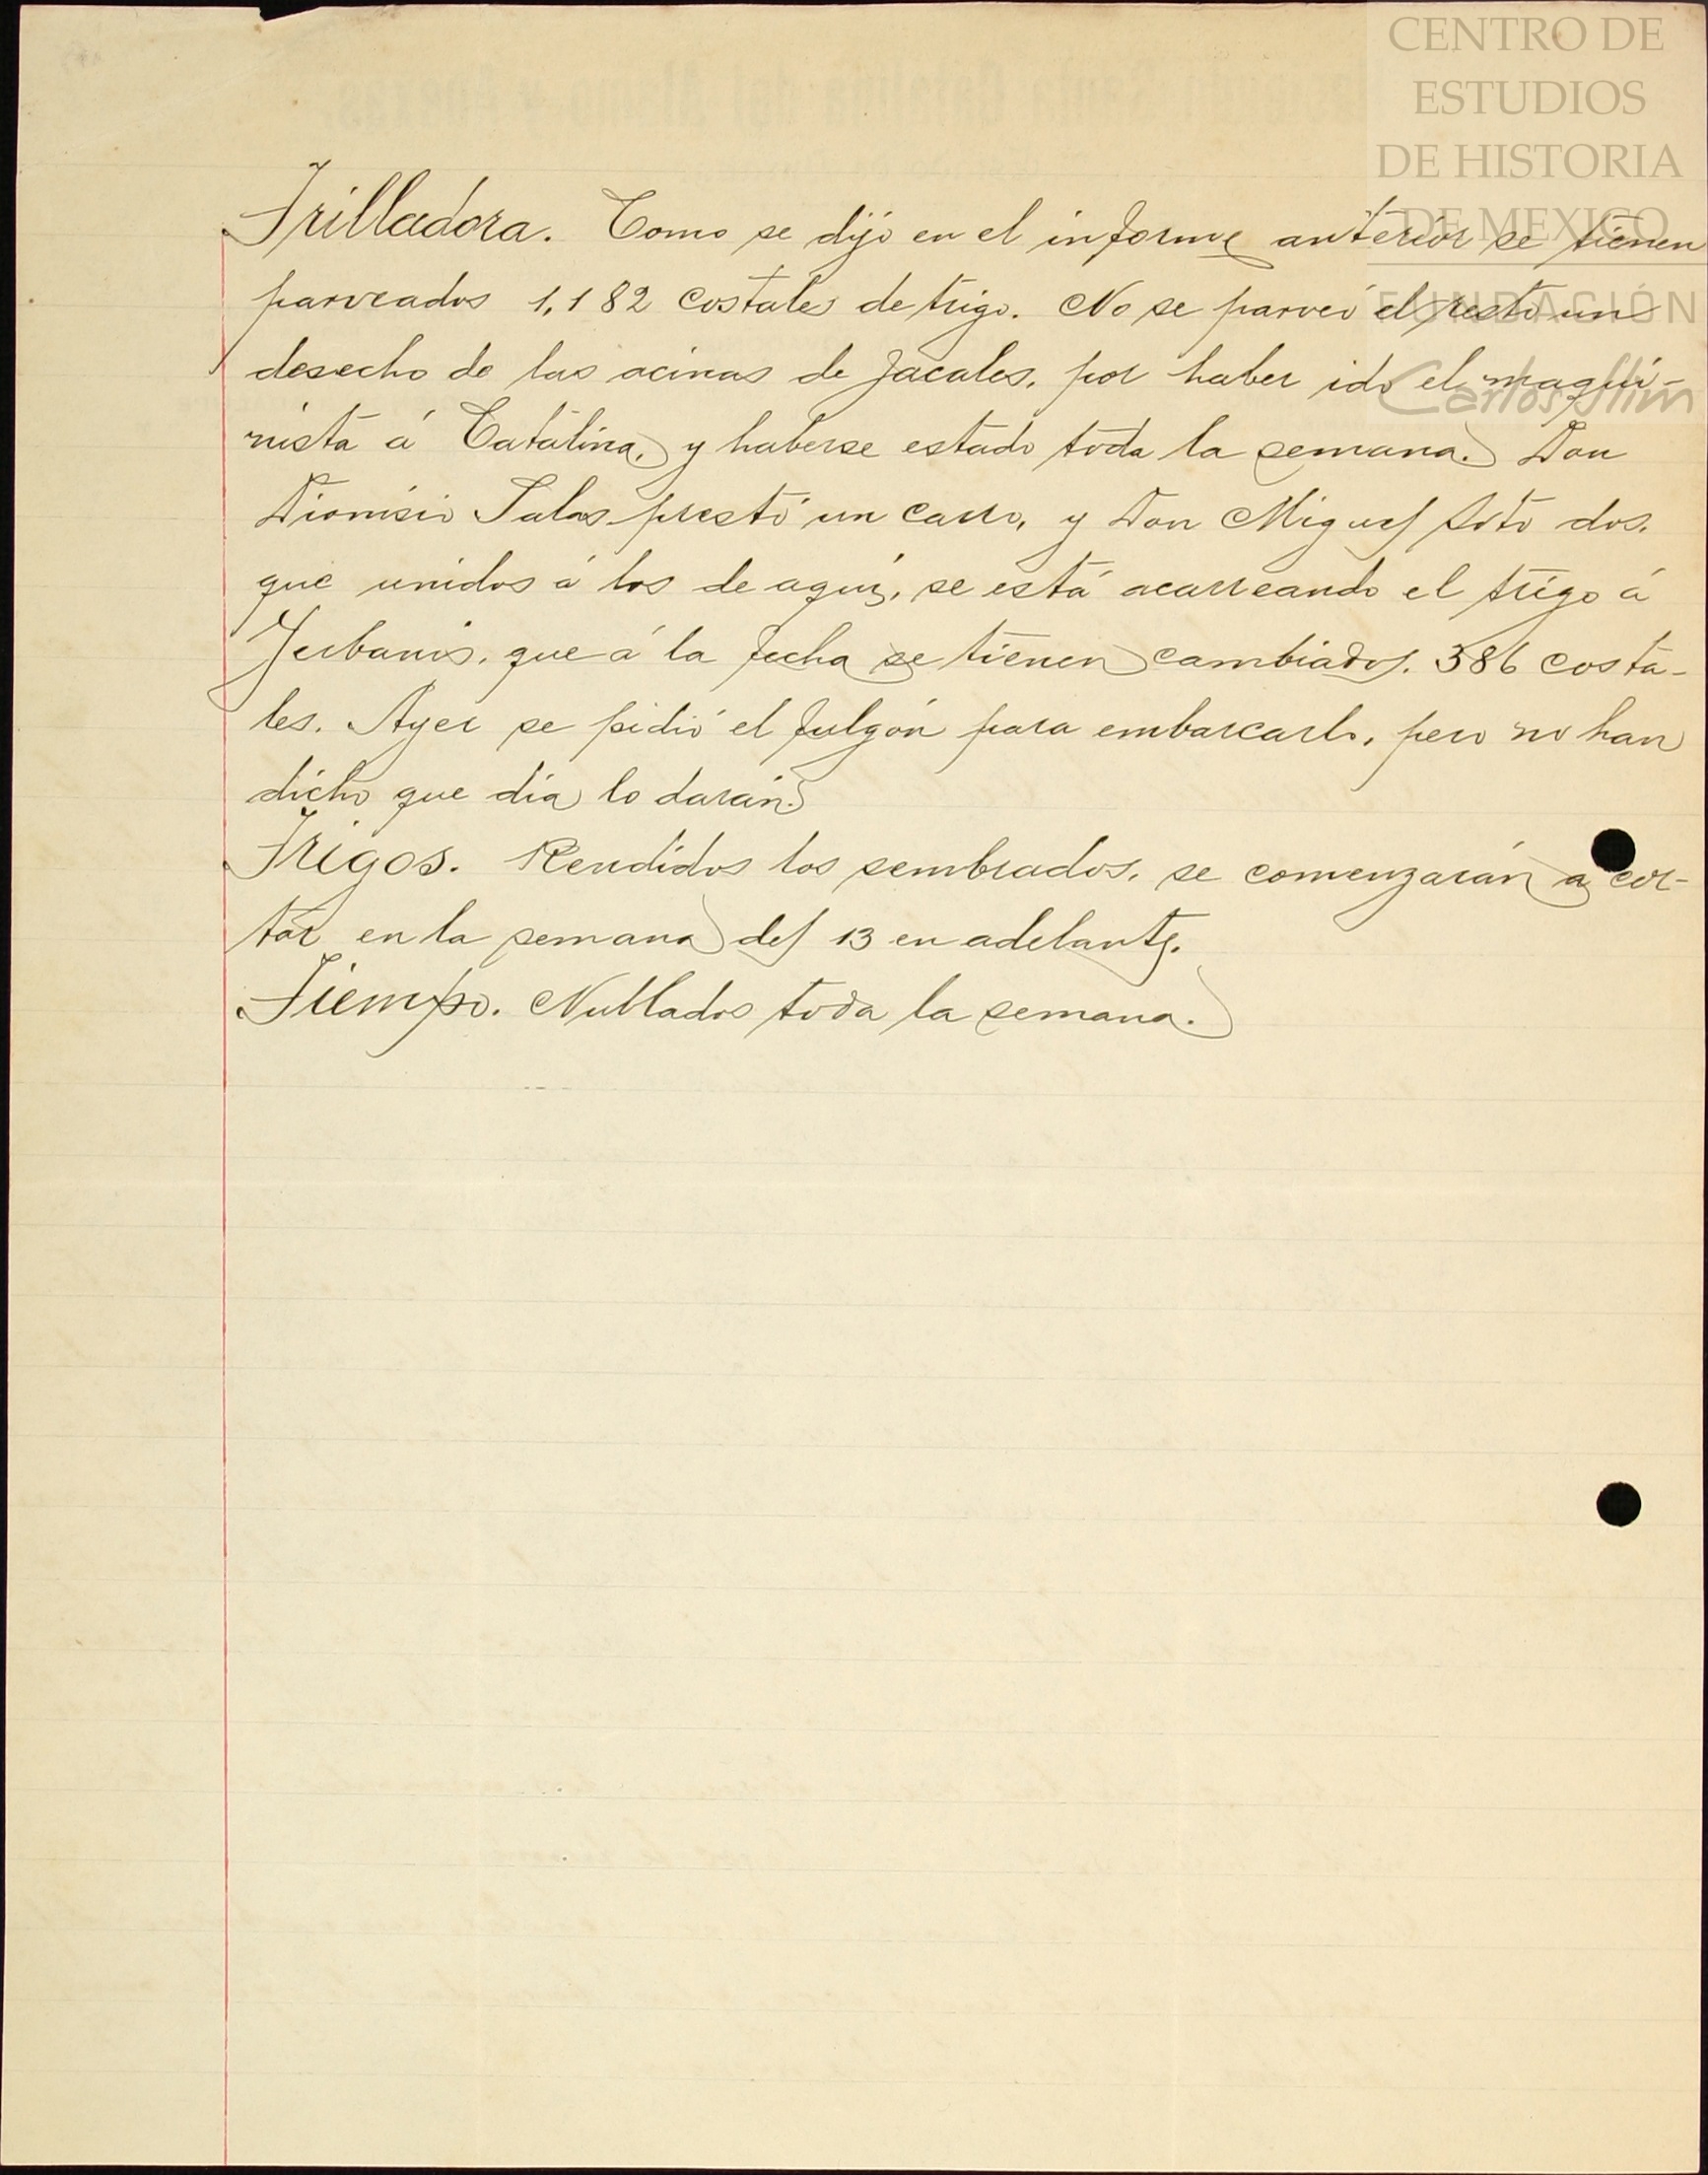 CENTRO DE
ESTUDIOS
DE HISTORIA
DE MEXICO
FUNDACIÓN
Carlos Slim
Trilladora. Como se dijo en el informe anterior se tienen
parveados 1,182 costales de trigo. No se parveó el resto un
desecho de las acinas de Jacales, por haber ido el maqui-
nista á Catalina, y haberse estado toda la semana. Don
Dionisio Salas prestó un carro, y Don Miguel Soto dos.
que unidos á los de aquí, se está acarreando el trigo á
Yerbanis, que á la fecha se tienen cambiados. 386 costa-
les. Ayer se pidió el fulgón para embarcarlo, pero no han
dicho que día lo darán.
Trigos. Rendidos los sembrados, se comenzarán a cor-
tar en la semana del 13 en adelante.
Tiempo. Nublados toda la semana.